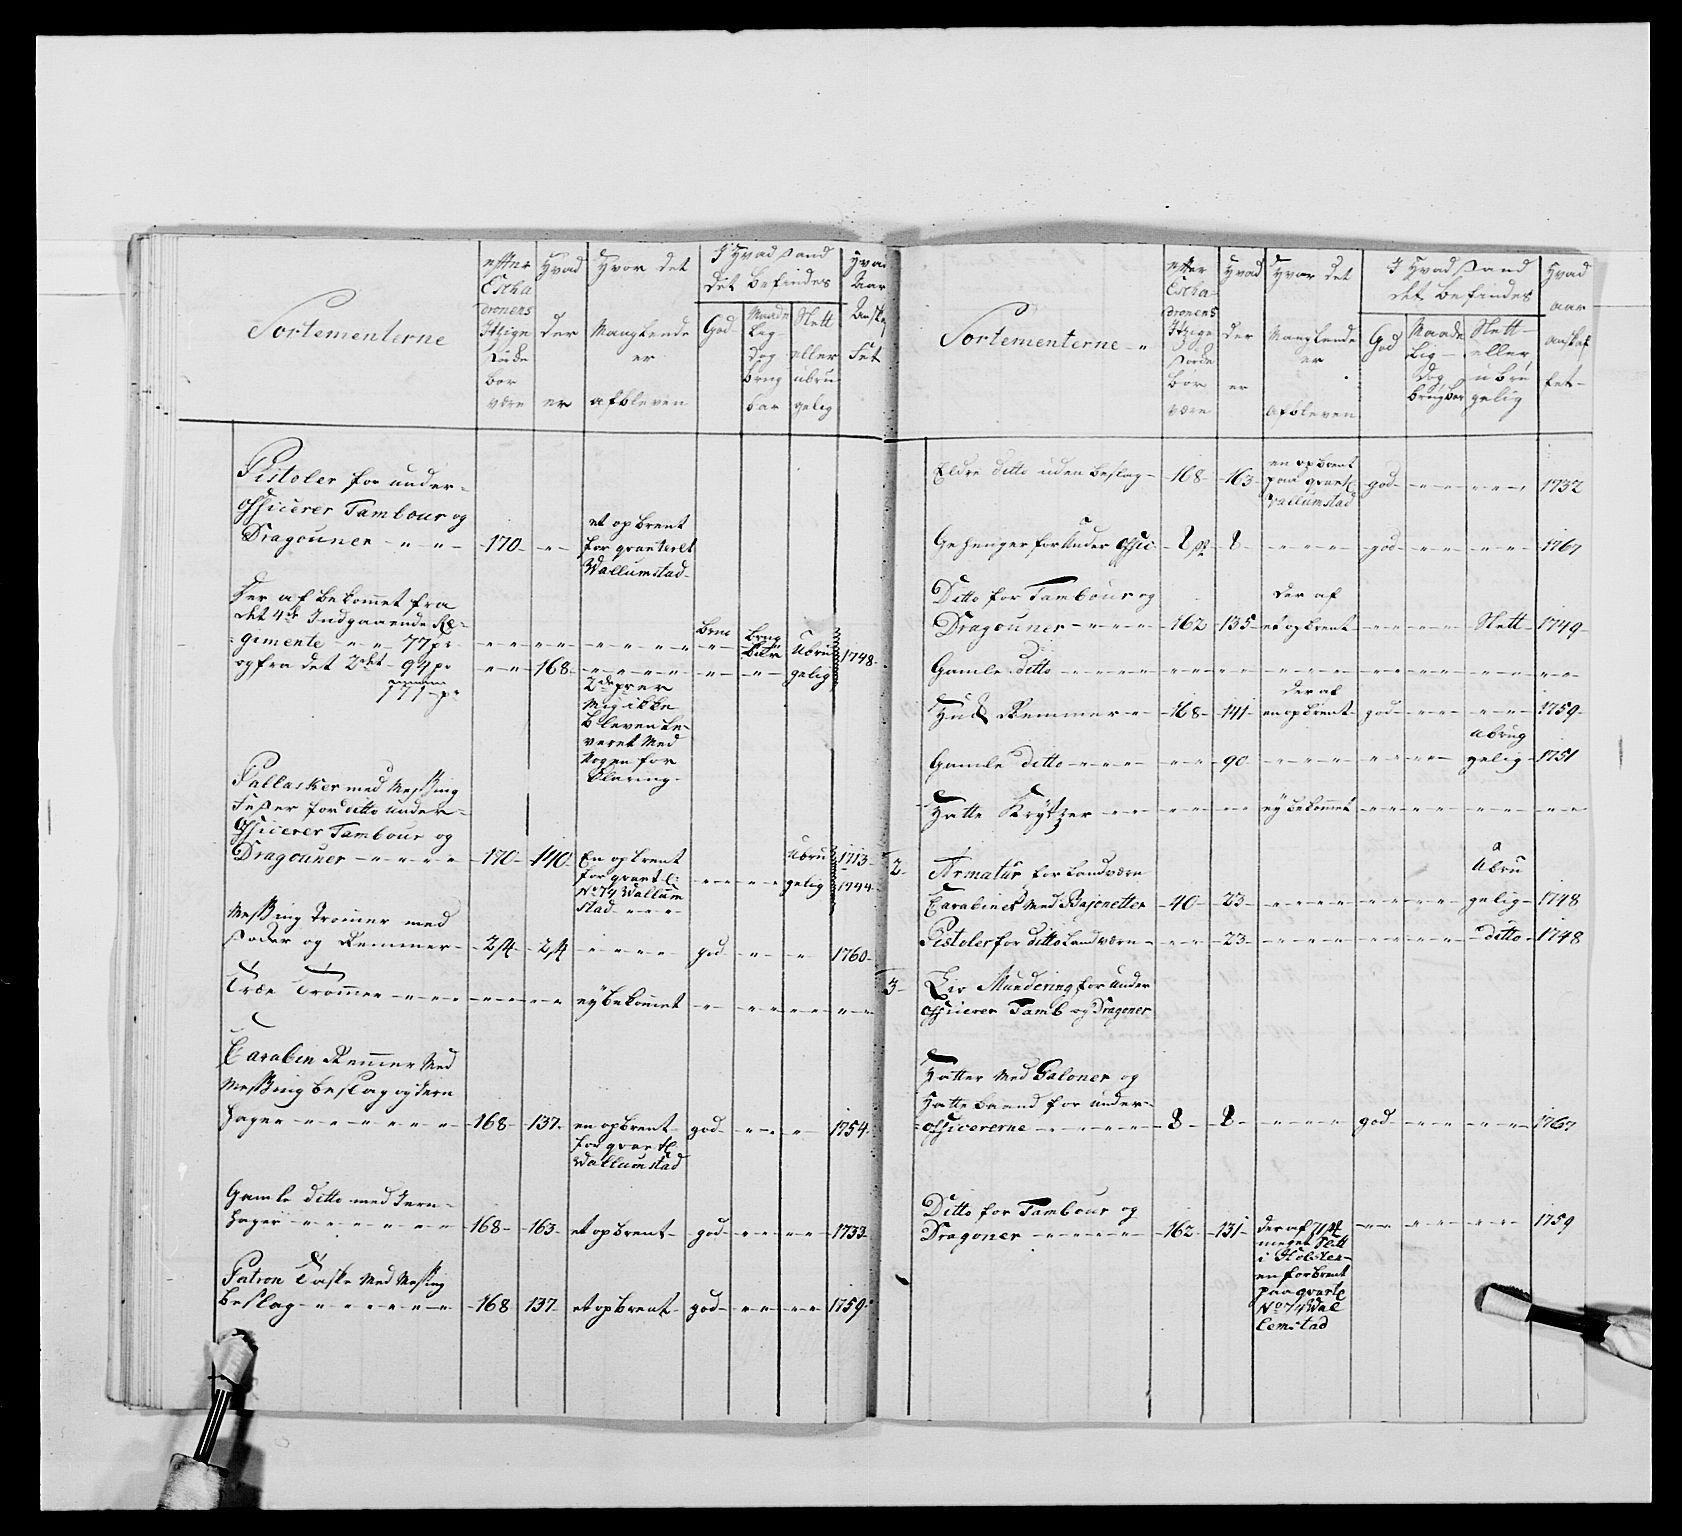 Sortementerne
efter Escha dronens Itzige Støde bør være
Hvad der er
Hvor det Manglende er afbleven
I Hvad stand det befindes
God
Maade lig dog brug bar
Slett eller ubru gelig
Hvad Aar Anskaf fet
Pistoler for under-
officerer Tambour og
Dragouner - - - 170 - - et opbrent
for qvarteret
Wallumstad
Her af bekommet fra
det 4de Indgaaende Re-
gimente - - 77 pr
og fra det 2det 94 pr - - 168 - - - - - - Ubru gelig 1748
171 pr
2de prer
Mig ikke
bleven le-
veret Med
Nogen for
klaring
Pallasker med Messing
Fester for ditto under-
officerer Tambour og
Dragouner - - - - 170 - 140 - En opbrent
for qvart:
No 74 Wallum
stad - - - - - - Ubru gelig 1713 1744
Messing Trommer med
stoder og Remmer - 2 st - 2 st - - - - god - - - 1760
Træe Trommer - - - - - - - ey bekommet - - - - - - -
Carabin Remmer Med
Messing beslag og Jern
hager - - - - - - 168 - 137 - en opbrent god - - - 1754
for qvart
Wallumstad
Gamle ditto med Jern-
hager - - - - - - 168 - 163 - et opbrent - god - - - - 1733
Patron Taske Med Messing
beslag - - - - - - 168 137 - et opbrent - god - - - - 1759
Sortementerne
efter Escha dronens Itzige stode bør være
Hvad der er
Hvor det Manglende er afbleven
I Hvad stand det befindes
God
Maade lig dog brugbar
Slett eller ubru gelig
Hvad aar anskaf fet
Eldre ditto uden beslag - 168 - 163 - en opbrent
paa qvart
Wallumstad god - - - - - 1732
Gehenger for Under Offic - 8 st - 8 - - - - god - - - - 1767
Ditto for Tambour og
Dragouner - - - - 162 135 - der af
et opbrent - - - - Slett - 1749
Gamle ditto - - - - - - - - - - - - -
Hud Remmer - - 168 - 141 - der af
en opbrent - god - - - - - 1759
Gamle ditto - - - - - - 90 - - - - - - - - ubrug
gelig - 1751
Hatte Krytzer - - - - - - - ey bekommet - - - - - - -
2 Armatur for landværn
Carabiner Med Bajonetter - 40 - 23 - - - - - - - - Ubru
gelig - 1748
Pistoler for ditto Landværn - - - 23 - - - - - - - - ditto - 1748
3 Liv Mundering for Under
officerer Tamb og Dragoner
Hatter Med Galoner og
Hatte baand for under-
officererne - - - - - 8 - 8 - - - - god - - - - - 1767
Ditto for Tambour og
Dragoner - - - - - 162 - 131 - der af 71 st - - - - - - - 1759
meget Slett
i Holsten
en forbrent
paa qvarte
No 74 Wal
lemstad